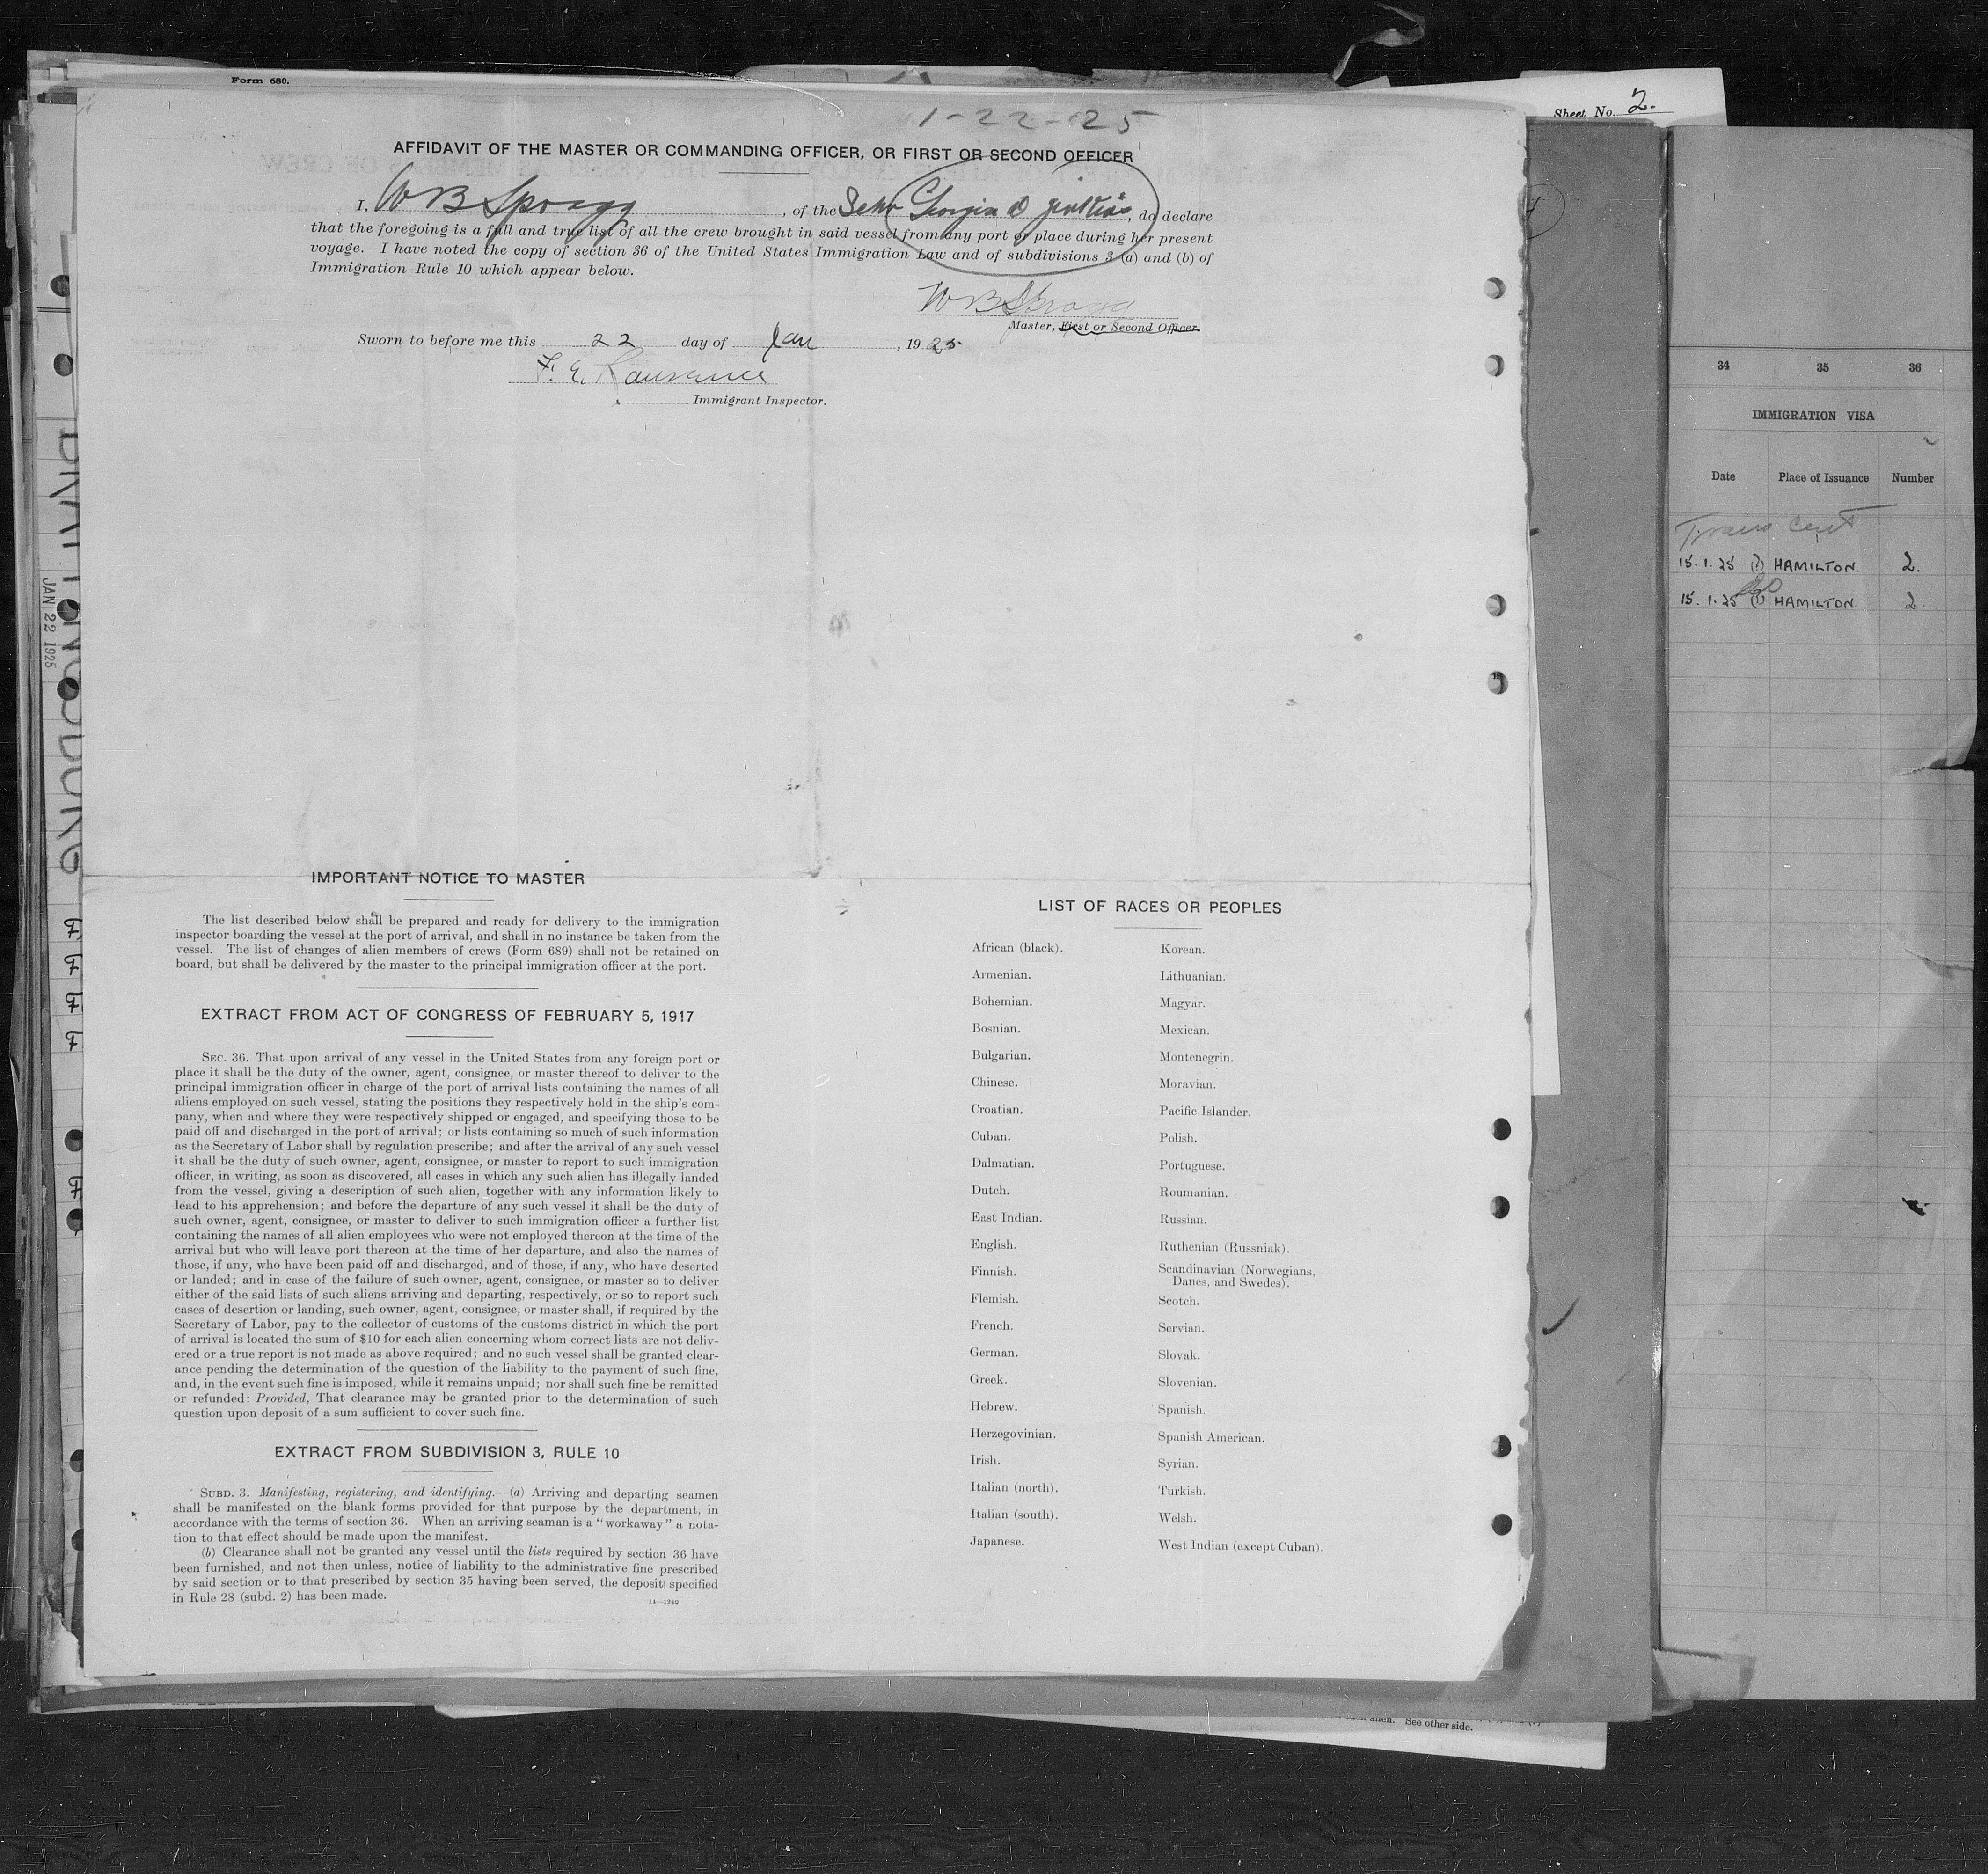 Form 680.
Sheet No. 2.
1-22-25
AFFIDAVIT OF THE MASTER OR COMMANDING OFFICER, OR FIRST OR SECOND OFFICER
I, W B Spragg, of the Schr Georgia D Jenkins, do declare
that the foregoing is a full and true list of all the crew brought in said vessel from any port or place during her present
voyage. I have noted the copy of section 36 of the United States Immigration Law and of subdivisions 3 (a) and (b) of
Immigration Rule 10 which appear below.
W B Spragg
Master, First or Second Officer.
Sworn to before me this 22 day of Jan, 1925
F. E. Lawrence
Immigrant Inspector.
JAN 22 1925
IMPORTANT NOTICE TO MASTER
The list described below shall be prepared and ready for delivery to the immigration
inspector boarding the vessel at the port of arrival, and shall in no instance be taken from the
vessel. The list of changes of alien members of crews (Form 689) shall not be retained on
board, but shall be delivered by the master to the principal immigration officer at the port.
EXTRACT FROM ACT OF CONGRESS OF FEBRUARY 5, 1917
SEC. 36. That upon arrival of any vessel in the United States from any foreign port or
place it shall be the duty of the owner, agent, consignee, or master thereof to deliver to the
principal immigration officer in charge of the port of arrival lists containing the names of all
aliens employed on such vessel, stating the positions they respectively hold in the ship's com-
pany, when and where they were respectively shipped or engaged, and specifying those to be
paid off and discharged in the port of arrival; or lists containing so much of such information
as the Secretary of Labor shall by regulation prescribe; and after the arrival of any such vessel
it shall be the duty of such owner, agent, consignee, or master to report to such immigration
officer, in writing, as soon as discovered, all cases in which any such alien has illegally landed
from the vessel, giving a description of such alien, together with any information likely to
lead to his apprehension; and before the departure of any such vessel it shall be the duty of
such owner, agent, consignee, or master to deliver to such immigration officer a further list
containing the names of all alien employees who were not employed thereon at the time of the
arrival but who will leave port thereon at the time of her departure, and also the names of
those, if any, who have been paid off and discharged, and of those, if any, who have deserted
or landed; and in case of the failure of such owner, agent, consignee, or master so to deliver
either of the said lists of such aliens arriving and departing, respectively, or so to report such
cases of desertion or landing, such owner, agent, consignee, or master shall, if required by the
Secretary of Labor, pay to the collector of customs of the customs district in which the port
of arrival is located the sum of $10 for each alien concerning whom correct lists are not deliv-
ered or a true report is not made as above required; and no such vessel shall be granted clear-
ance pending the determination of the question of the liability to the payment of such fine,
and, in the event such fine is imposed, while it remains unpaid; nor shall such fine be remitted
or refunded: Provided, That clearance may be granted prior to the determination of such
question upon deposit of a sum sufficient to cover such fine.
EXTRACT FROM SUBDIVISION 3, RULE 10
SUBD. 3. Manifesting, registering, and identifying.—(a) Arriving and departing seamen
shall be manifested on the blank forms provided for that purpose by the department, in
accordance with the terms of section 36. When an arriving seaman is a "workaway" a nota-
tion to that effect should be made upon the manifest.
(b) Clearance shall not be granted any vessel until the lists required by section 36 have
been furnished, and not then unless, notice of liability to the administrative fine prescribed
by said section or to that prescribed by section 35 having been served, the deposit specified
in Rule 28 (subd. 2) has been made.
14—1240
LIST OF RACES OR PEOPLES
African (black).
Armenian.
Bohemian.
Bosnian.
Bulgarian.
Chinese.
Croatian.
Cuban.
Dalmatian.
Dutch.
East Indian.
English.
Finnish.
Flemish.
French.
German.
Greek.
Hebrew.
Herzegovinian.
Irish.
Italian (north).
Italian (south).
Japanese.
Korean.
Lithuanian.
Magyar.
Mexican.
Montenegrin.
Moravian.
Pacific Islander.
Polish.
Portuguese.
Roumanian.
Russian.
Ruthenian (Russniak).
Scandinavian (Norwegians,
Danes, and Swedes).
Scotch.
Servian.
Slovak.
Slovenian.
Spanish.
Spanish American.
Syrian.
Turkish.
Welsh.
West Indian (except Cuban).
34 35 36
IMMIGRATION VISA
Date Place of Issuance Number
Trans Cert
15.1.25 HAMILTON. 2.
15.1.25 HAMILTON. 2
alien. See other side.